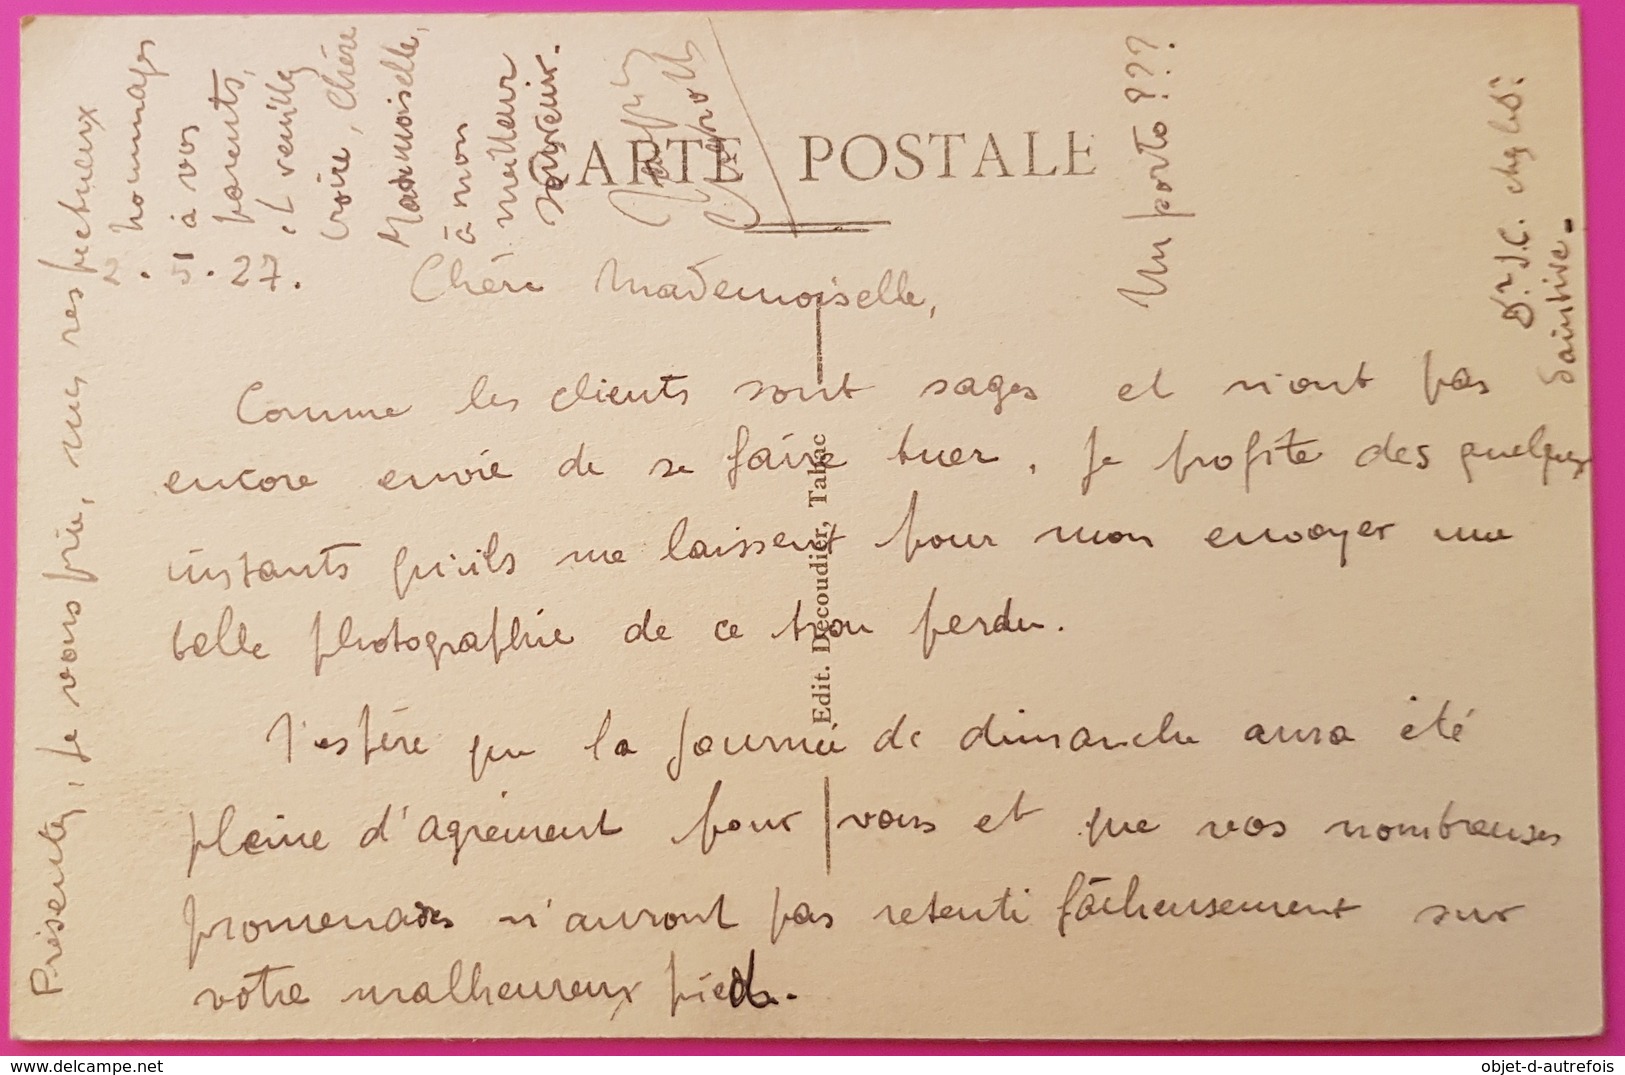 CARTE POSTALE
2. 5. 27.
Chère Mademoiselle,
Comme les clients sont sages et n'ont pas
encore envie de se faire tuer, je profite des quelques
instants qu'ils me laissent pour mon envoyer une
belle photographie de ce trou perdu.
J'espère que la journée de dimanche aura été
pleine d'agrément pour vous et que vos nombreuses
promenades n'auront pas retenti fâcheusement sur
votre malheureux pied.
Présentez, je vous prie, mes respectueux
hommages
à vos
parents,
et veuillez
croire, Chère
Mademoiselle,
à mon
meilleur
souvenir.
Un porto ???
Dr J.C.
Saintive.
Edit. Decoudier, Tabac
objet-d-autrefois